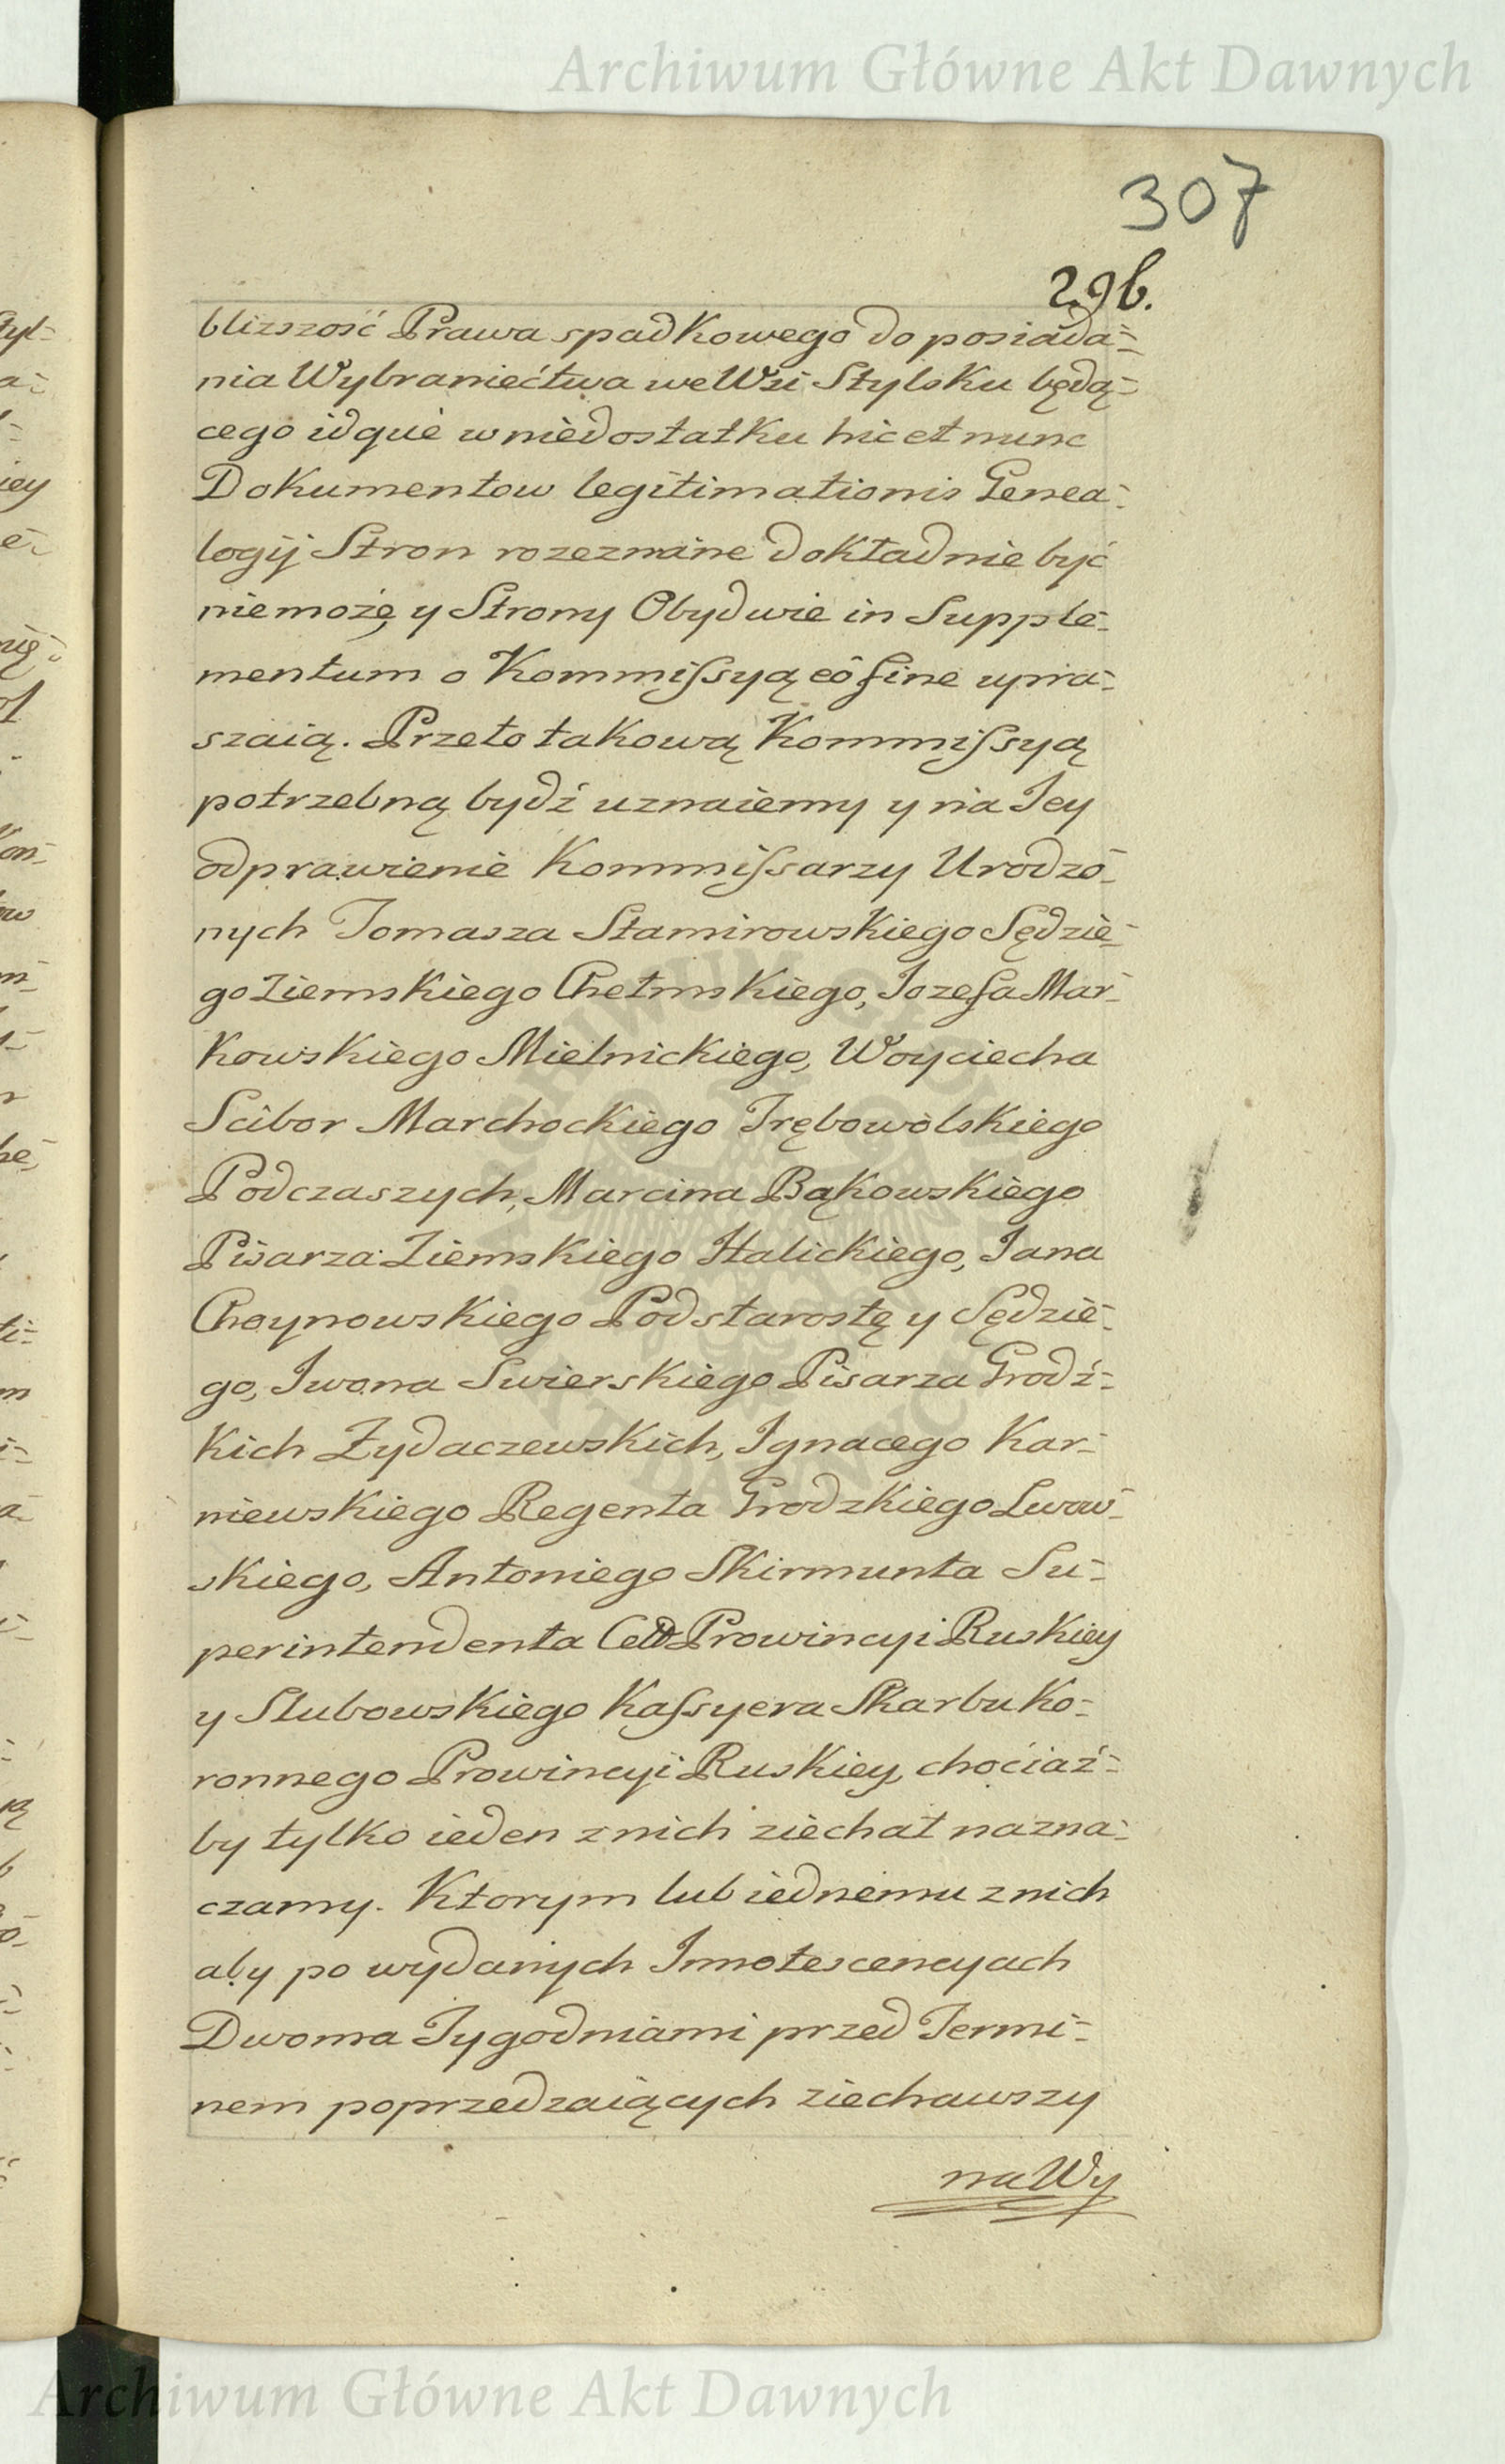 Archiwum Główne Akt Dawnych
307
296.
blizszość Prawa spadkowego do posiada-
nia Wybraniećtwa we Wsi Stylsku będą-
cego idque w niedostatku hic et nunc
Dokumentow legitimationis Genea-
logij Stron rozeznane dokładnie być
niemoże, y Strony Obydwie in Supple-
mentum o Kommissyą eô fine upra-
szaią. Przeto takową Kommissyą
potrzebną bydź uznaiemy y na Jey
odprawienie Kommissarzy Urodzo-
nych Tomasza Stamirowskiego Sędzie-
go Ziemskiego Chełmskiego, Jozefa Mar-
kowskiego Mielnickiego, Woyciecha
Scibor Marchockiego Trębowolskiego
Podczaszych, Marcina Bąkowskiego
Pisarza Ziemskiego Halickiego, Jana
Choynowskiego Podstarostę y Sędzie-
go, Iwona Swierskiego Pisarza Grodź-
kich Żydaczewskich, Ignacego Kar-
niewskiego Regenta Grodzkiego Lwow-
skiego, Antoniego Skirmunta Su-
perintendenta Ceł Prowincyi Ruskiey
y Slubowskiego Kassyera Skarbu Ko-
ronnego Prowincyi Ruskiey, chociaż-
by tylko ieden z nich ziechał nazna-
czamy. Ktorym lub iednemu z nich
aby po wydanych Innotescencyach
Dwoma Tygodniami przed Termi-
nem poprzedzaiących ziechawszy
na Wy
Archiwum Główne Akt Dawnych